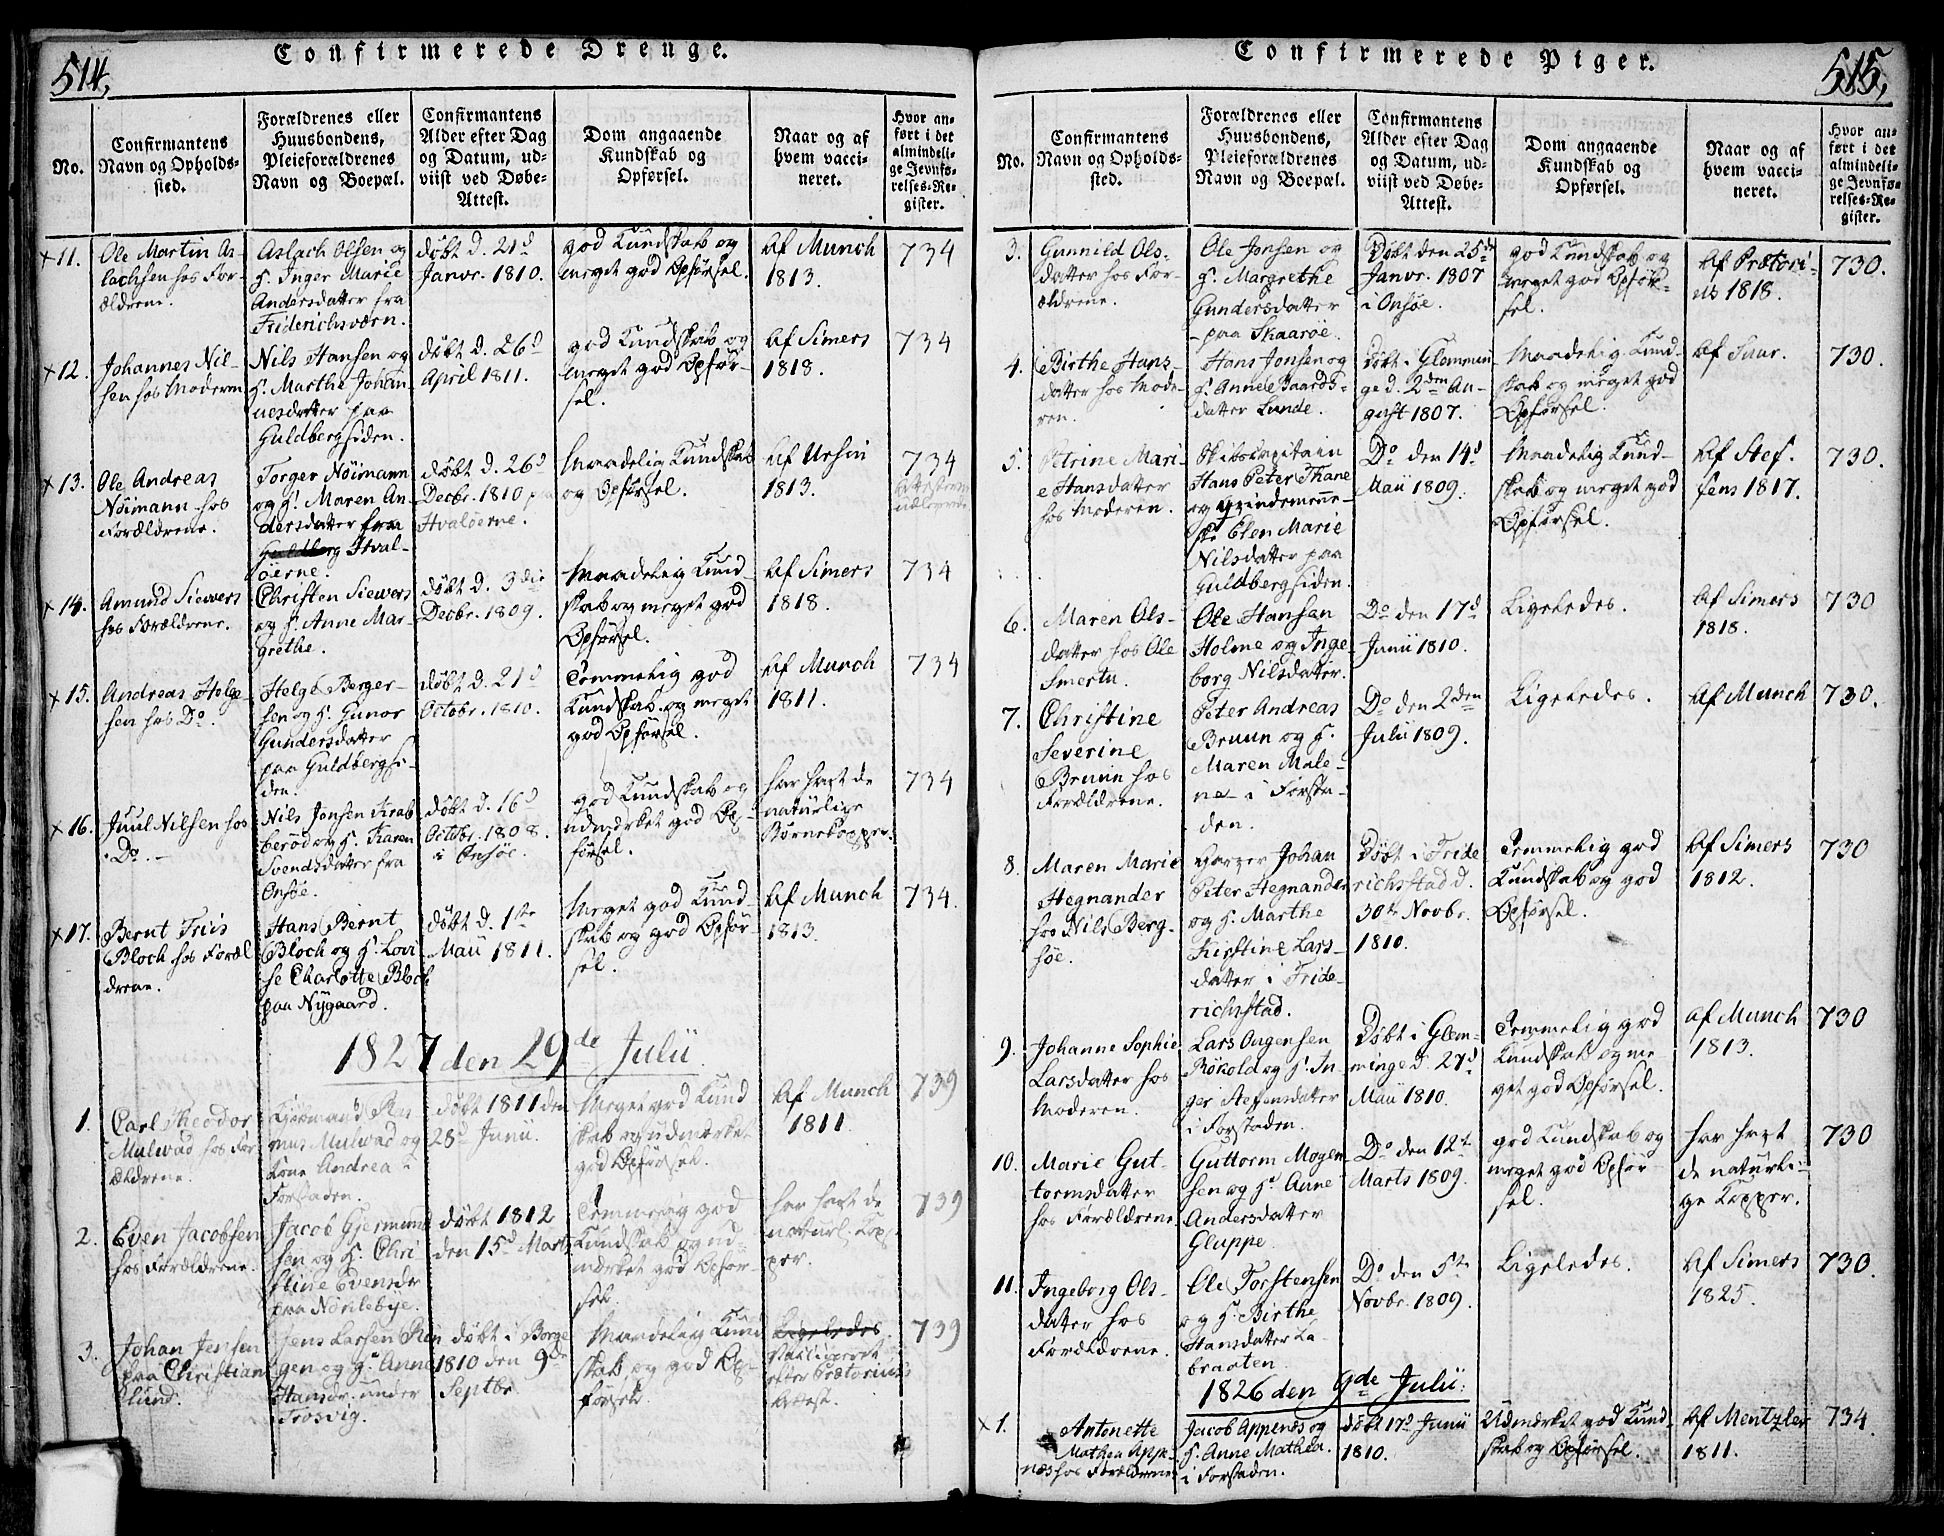 514,
Confirmerede Drenge.
No.
Confirmantens
Navn og Opholds-
sted.
Forældrenes eller
Huusbondens,
Pleieforældrenes
Navn og Boepæl.
Confirmantens
Alder efter Dag
og Datum, ud-
viist ved Døbe-
Attest.
Dom angaaende
Kundskab og
Opførsel.
Naar og af
hvem vacci-
neret.
Hvor an-
ført i det
almindeli-
ge Jevnfø-
relses-Re-
gister.
x 11.
Ole Martin As-
lachsen hos For-
ældrene.
Aslach Olsen og
H. Inger Marie
Andersdatter fra
Friderichsværn.
døbt d. 21d
Janvr. 1810.
god Kundskab og
meget god Opførsel.
Af Munch
1813.
734
x 12.
Johannes Nil-
sen hos Moderen
Nils Hansen og
H. Marthe Johan-
nesdatter paa
Guldbergsiden.
døbt d. 26d
April 1811.
god Kundskab og
meget god Opfør-
sel.
Af Simers
1818.
734
x 13.
Ole Andreas
Nöimann hos
Forældrene.
Torger Nöimann
og H. Maren An-
dersdatter fra
Guldberg Hval-
öerne.
døbt d. 26d
Decbr. 1810 paa
Hvalöerne.
Maadelig Kundskab
og Opførsel.
Af Ursin
1813.
734
x 14.
Amund Siewers
hos Forældrene.
Christen Siewers
og H. Anne Mar-
grethe.
døbt d. 3die
Decbr. 1809.
Maadelig Kund-
skab og meget god
Opførsel.
Af Simers
1818.
734
x 15.
Andreas Helge-
sen hos Do.
Helge Berger-
sen og H. Gunor
Gundersdatter
paa Guldbergsi-
den.
døbt d. 21d
Octobr. 1810.
Temmelig god
Kundskab og meget
god Opførsel.
Af Munch
1811.
734
x 16.
Juul Nilsen hos
Do. -
Nils Jensen Krab
beröd og H. Karen
Svendsdatter fra
Onsöe.
døbt d. 16d
Octbr. 1808.
i Onsöe.
god Kundskab og
udmærket god Op-
førsel.
har havt de
naturlige
Børnekopper.
734
x 17.
Bernt Friis
Bloch hos Foræl
drene.
Hans Bernt
Bloch og H. Lovi
se Charlotte Bloch
paa Nygaard.
døbt d. 1ste
Maii 1811.
Meget god Kund-
skab og god Opfør-
sel.
Af Munch
1813.
734.
1827 den 29de Julii
1.
Carl Theodor
Mulvad hos For-
ældrene.
Kjøbmand Ras
mus Mulvad og
Kone Andrea i
Forstaden.
døbt 1811 den
28d Junii.
Meget god Kund
skab og udmærket
god Opførsel.
Af Munch
1811.
739
2.
Even Jacobsen
hos Forældrene.
Jacob Gjermund
sen og H. Chri
stine Evensdr
paa Nörlebye.
døbt 1812
den 15d Marts
Temmelig god
Kundskab og ud-
mærket god Opfør-
sel.
har havt de
naturl. Kop-
per.
739
3.
Johan Jensen
paa Christian
slund.
Jens Larsen
gen og H. Anne
Hansdr. under
Trosvig.
døbt i Borge
1810 den 9de
Septbr
Maadelig Kund
skab og god Op-
førsel.
Ligeledes.
efter Prætorius's
Attest.
739
515,
Confirmerede Piger.
No.
Confirmantens
Navn og Opholds-
sted.
Forældrenes eller
Huusbondens,
Pleieforældrenes
Navn og Boepæl.
Confirmantens
Alder efter Dag
og Datum, ud-
viist ved Døbe-
Attest.
Dom angaaende
Kundskab og
Opførsel.
Naar og af
hvem vacci-
neret.
Hvor an-
ført i det
almindeli-
ge Jevnfø-
relses-Re-
gister.
3.
Gunnild Ols-
datter hos For-
ældrene.
Ole Jonsen og
H. Margrethe
Gundersdatter
paa Skaaröe.
Døbt den 25de
Janvr. 1807
i Onsöe.
god Kundskab og
meget god Opfør-
sel.
Af Prætori-
us 1818.
730.
4.
Birthe Hans-
datter hos Mode-
ren.
Hans Jonsen og
H. Annele Baards-
datter Lunde.
Døbt i Glemmin
ge d. 2den Au-
gust 1807.
Maadelig Kund-
skab og meget god
Opførsel.
Af Tuur.
730.
5.
Petrine Mari-
e Hansdatter
hos Moderen.
Skibscapitain
Hans Peter Thane
og Qvindemenne-
ske Elen Marie
Nilsdatter paa
Guldbergsiden.
Do den 14d
Maii 1809.
Maadelig Kund-
skab og meget god
Opførsel.
Af Stef-
fens 1817.
730.
6.
Maren Ols-
datter hos Ole
Smertu.
Ole Hansen
Holme og Inge
borg Nilsdatter.
Do den 17d
Junii 1810.
Ligeledes.
Af Simers
1818.
730
7.
Christine
Severine
Bruun hos
Forældrene.
Peter Andreas
Bruun og H.
Maren Male-
ne i Forsta-
den.
Do den 2den
Julii 1809.
Ligeledes.
Af Munch
730.
8.
Maren Marie
Hegnander
hos Nils Berg-
höe.
Johan
Peter Hegnander
og H. Marthe
Kirstine Lars-
datter i Fride-
richstad.
Døbt i Fride
richstad d.
30te Novbr.
1810.
Temmelig god
Kundskab og god
Opførsel.
Af Simers
1812.
730
9.
Johanne Sophie
Larsdatter hos
Moderen.
Lars Ougensen
Rökold og H. In
ger Stefensdatter
i Forstaden.
Døbt i Glem-
minge d. 27d
Maii 1810.
Temmelig god
Kundskab og me
get god Opførsel.
Af Munch
1813.
730
10.
Marie Gut-
tormsdatter
hos Forældrene.
Guttorm Mogen
sen og H. Anne
Andersdatter
Gluppe.
Do den 12te
Marts 1809.
god Kundskab og
meget god Opfør-
sel.
har havt
de naturli-
ge Kopper.
730
11.
Ingeborg Ols-
datter hos
Forældrene.
Ole Torstensen
og H. Birthe
Hansdatter La-
braaten.
Do den 5te
Novbr. 1809.
Ligeledes.
Af Simers
1825.
730.
1826 den 9de Julii.
x 1.
Antonette
Mathea Appe-
næs hos Forældrene
Jacob Appenæs og
H. Anne Mathea.
i Forstaden.
døbt 17d Junii
1810.
Udmærket god Kund-
skab og Opførsel.
Af Mentzler
1811.
734.